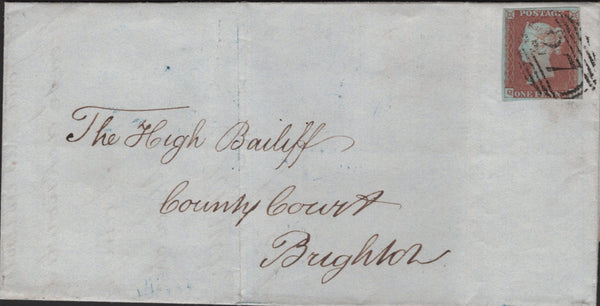 POSTAGE
The High Bailiff
County Court
Brighton